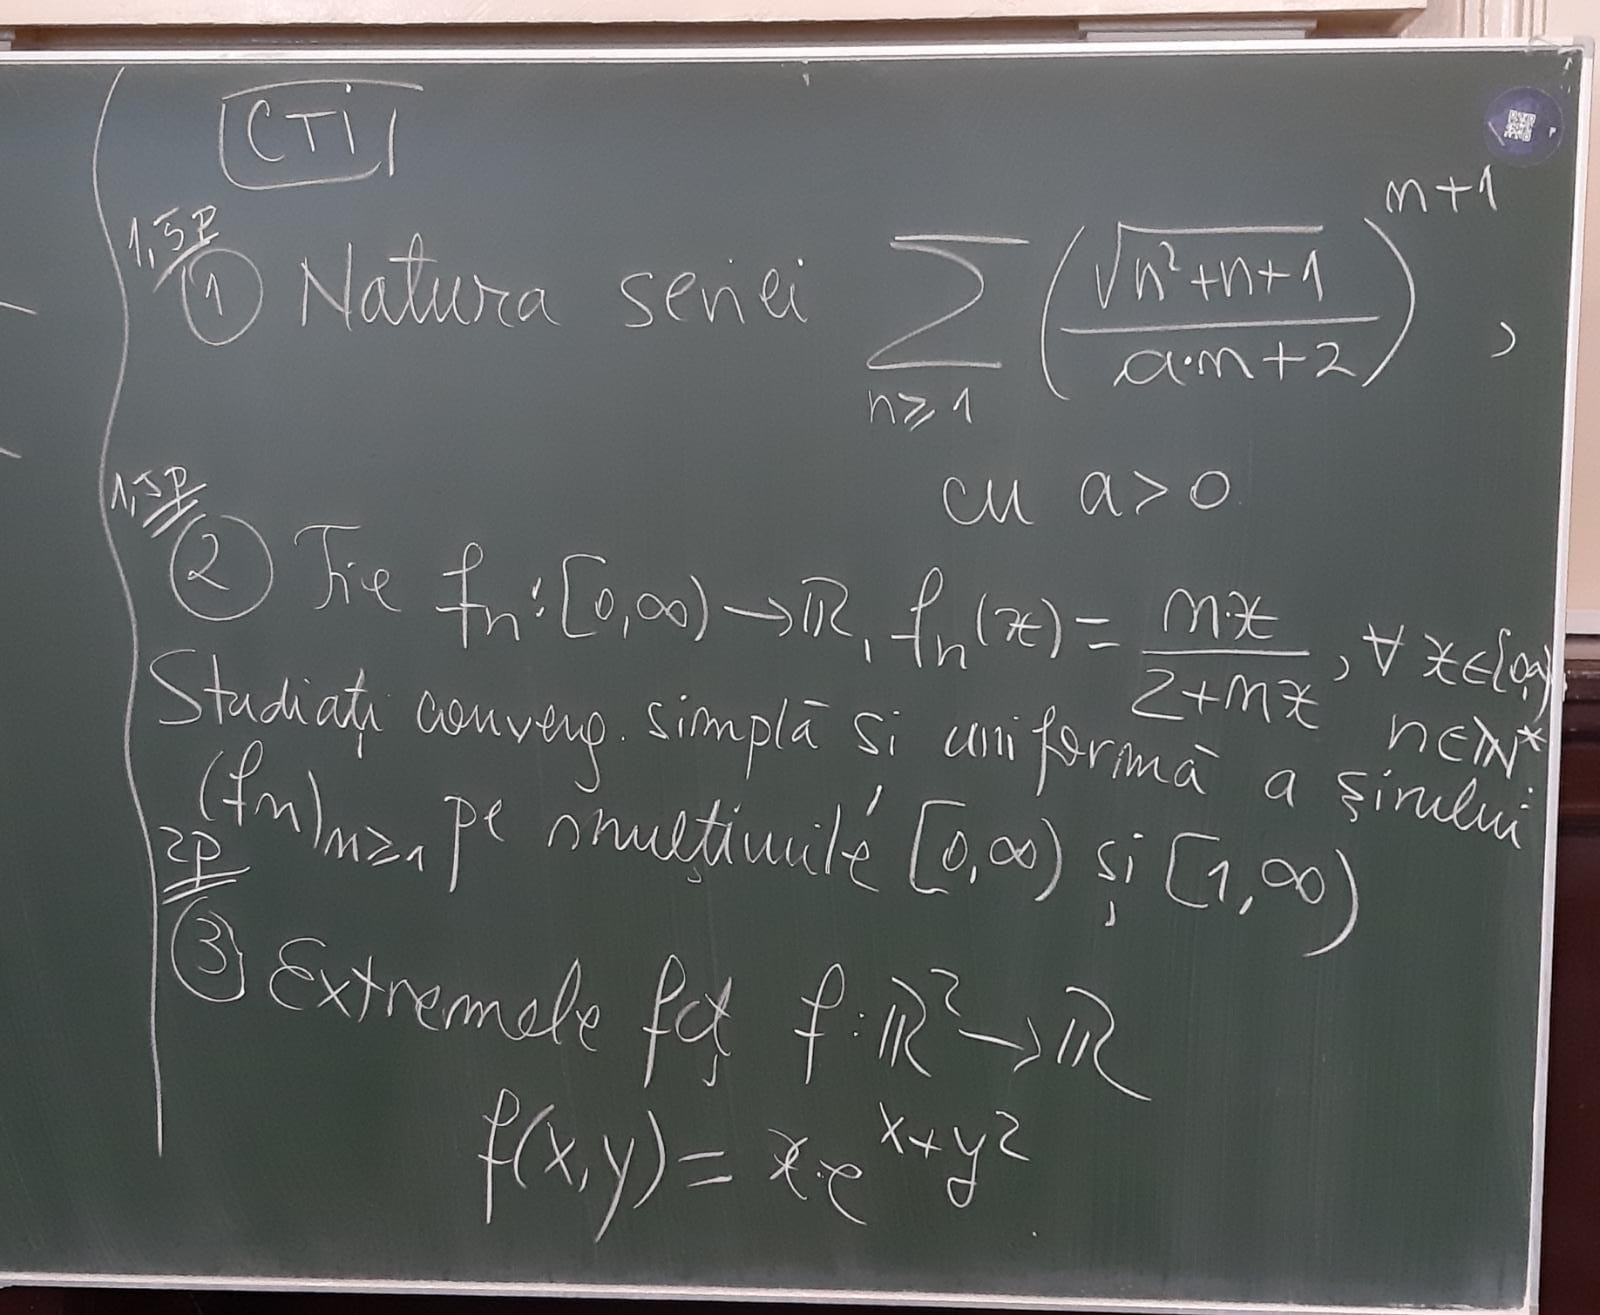 CTI
1,5p
① Natura seriei ∑ n≥1 (√(n²+n+1) / (a·n+2))^(n+1) ,
cu a>0
1,5p
② Fie fₙ:[0,∞)→ℝ, fₙ(x) = n·x / (2+nx), ∀ x∈[0,∞)
n∈ℕ*
Studiați converg. simplă si uniformă a șirului
(fₙ)n≥1 pe mulțimile [0,∞) și [1,∞)
2p
③ Extremele fcț f:ℝ²→ℝ
f(x,y) = x·e^(x+y²)